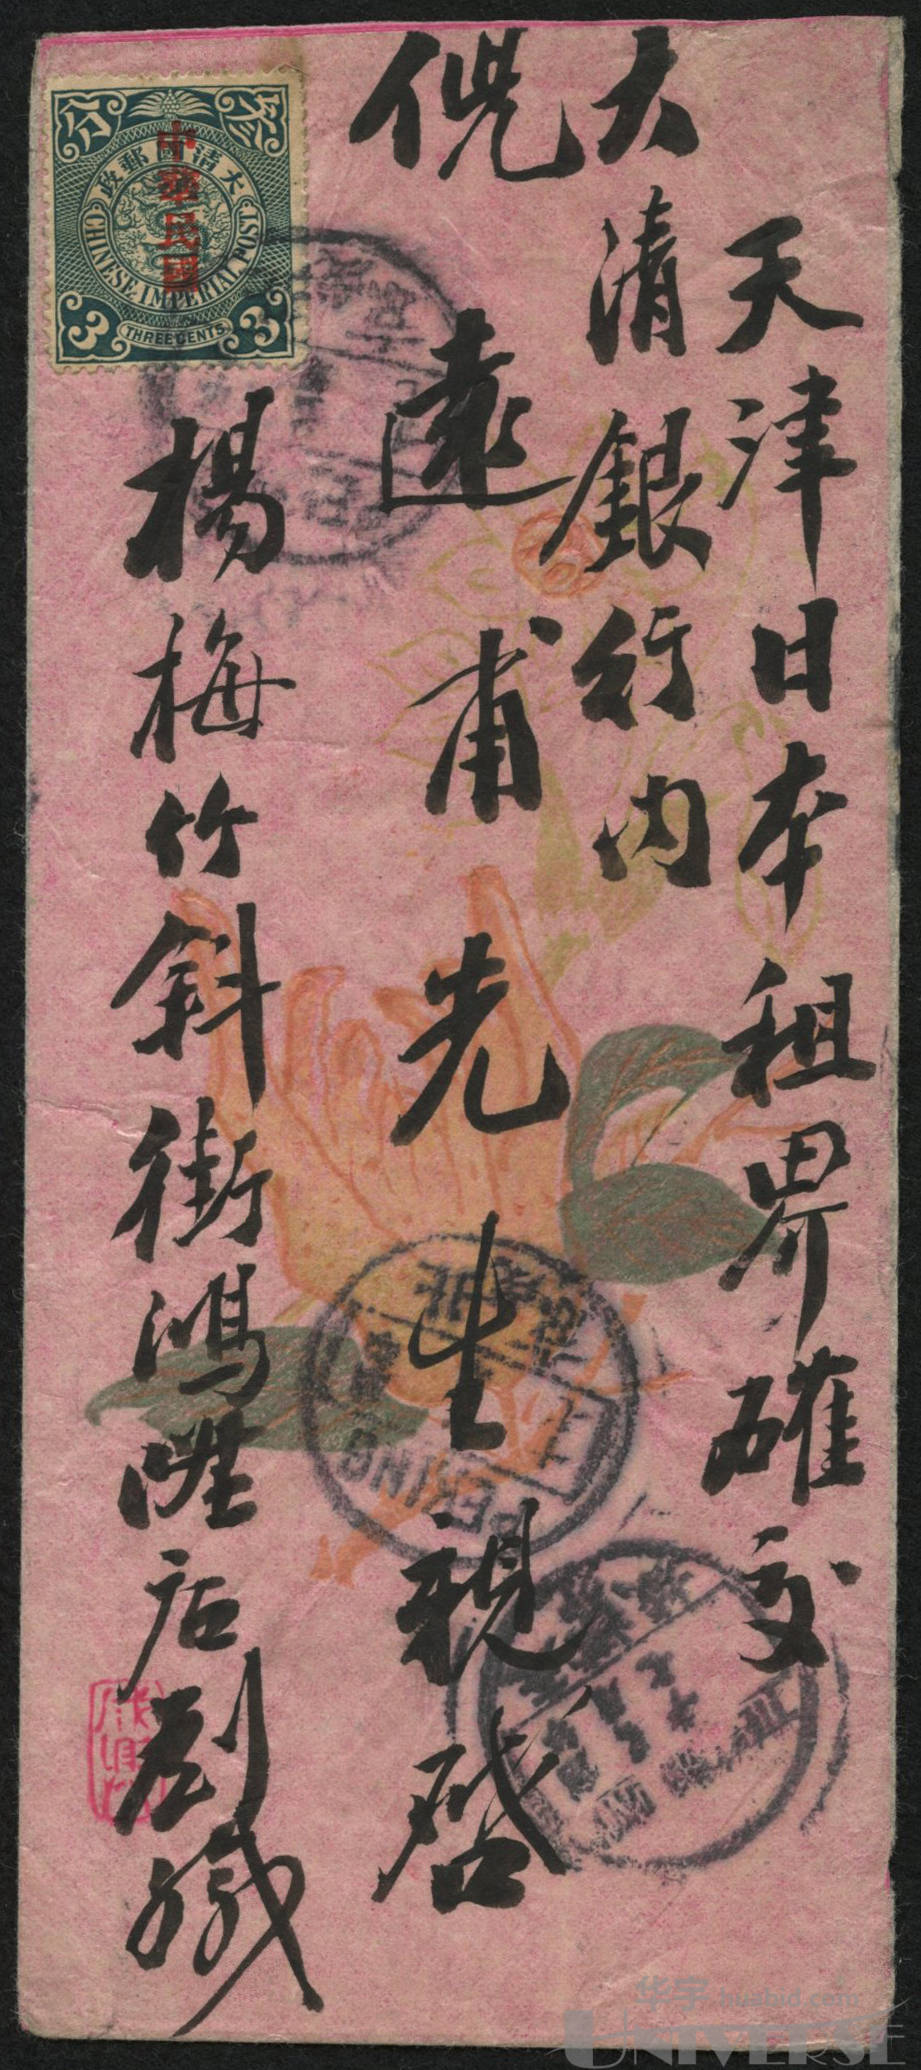 天津日本租界確交
大清銀行內
倪
遠甫先生親啓
楊梅竹斜街鴻陞店劉緘
分 叁
大清郵政
CHINESE IMPERIAL POST
中華民國
3 THREE CENTS 3
北京
PEKING
华宇 huabid.com
UNIVERSE